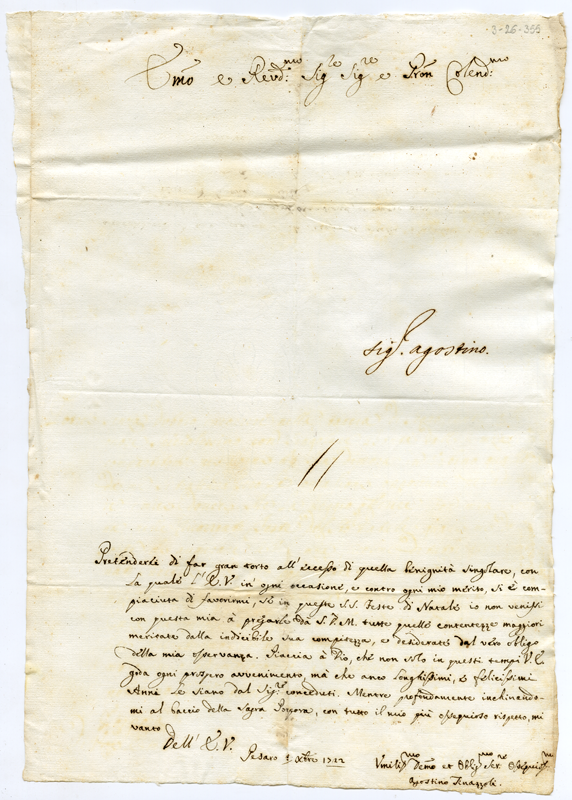 3-26-355
Emo e Revd:mo Sigre Sigre e Pron Colendmo
sigr. agostino.
Pretenderei di far gran torto all' eccesso di quella benignità singolare, con
la quale l' E.V. in' ogni occasione, e contro ogni mio merito, si è com-
piaciuta di favorirmi, se in queste SS. Feste di Natale io non venissi
con questa mia à pregarle da S.D.M. tutte quelle contentezze maggiori
meritate dalla indicibile sua compitezza, e desiderate dal vero obligo
della mia osservanza. Piaccia à Dio, che non solo in questi tempi V.E.
goda ogni prospero avvenimento, mà che anco longhissimi, e felicissimi
Anni le siano dal Sigre conceduti. Mentre profondamente inchinendo-
mi al baccio della Sagra Porpora, con tutto il mio più ossequioso rispeto, mi
vanto
Dell' E.V.
Pesaro Xbre 1722
Vmilismo Demo et Oblgmo Sere
Agostino